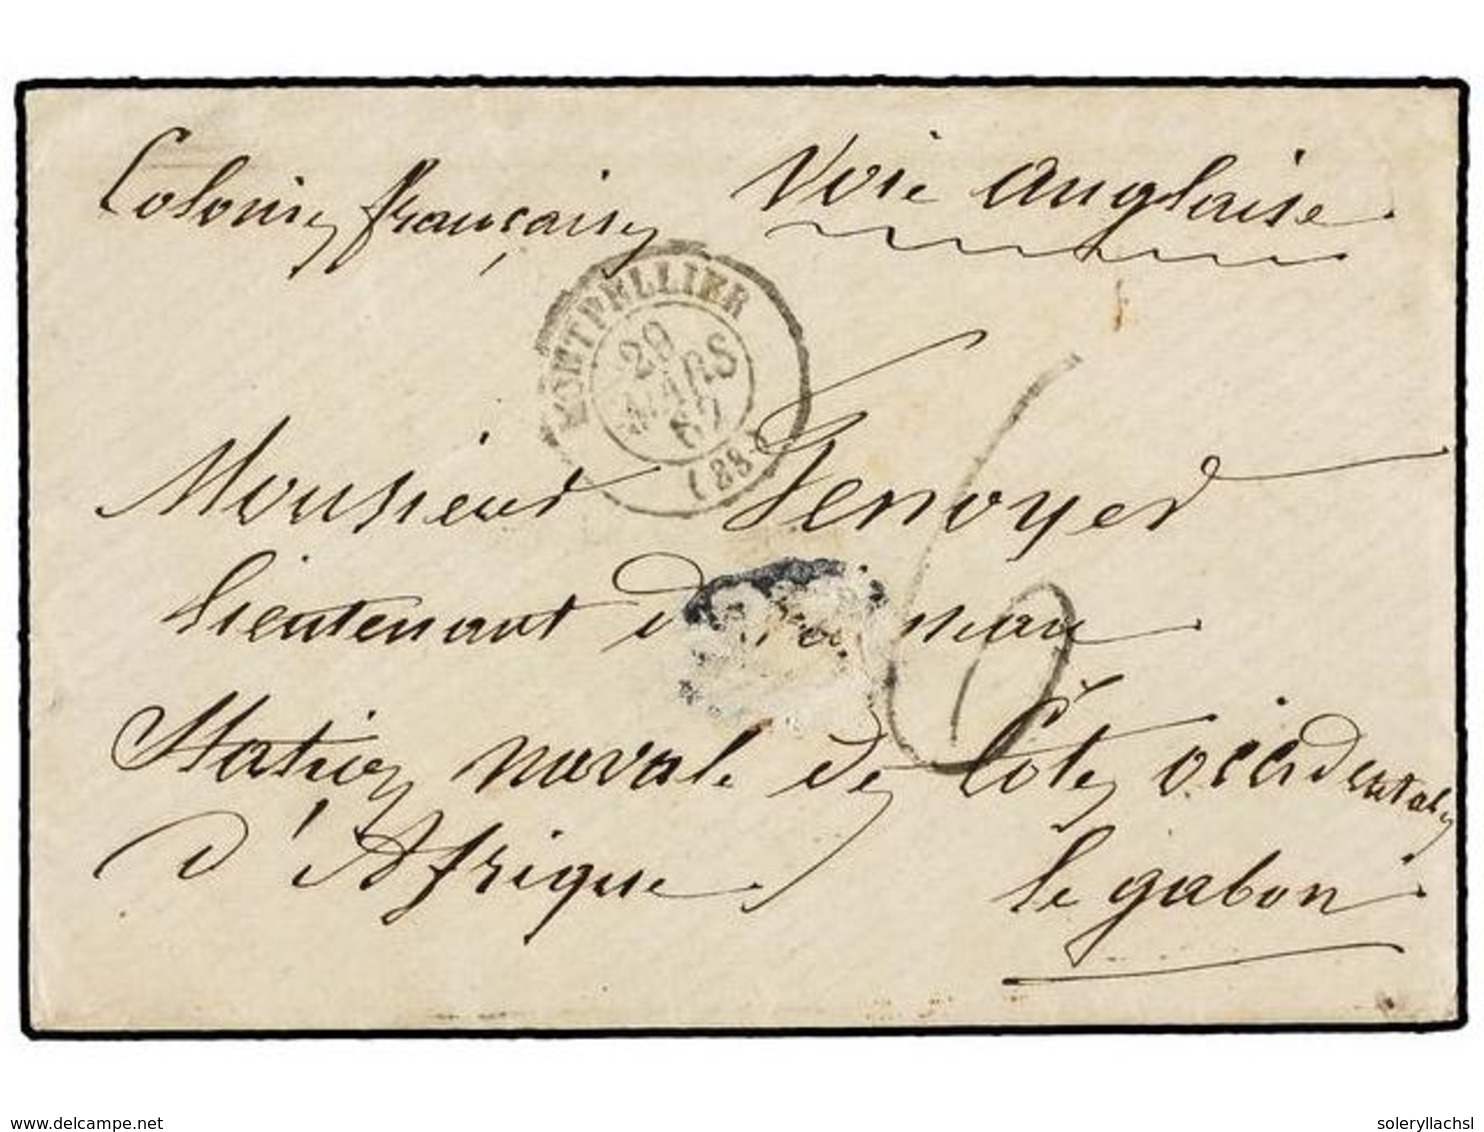 Colonies françaises
Voie anglaise
MONTPELLIER
29
MARS
67
Monsieur Fenoyer
lieutenant de vaisseau
Station navale des Côtes occidentales
d'Afrique
le gabon
6
delcampe.net
soleryllachsl